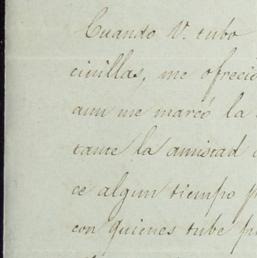 Cuando V. tubo
cinillas, me ofrecio
aun me marcó la
tame la amistad
ce algun tiempo p
con quienes tube p